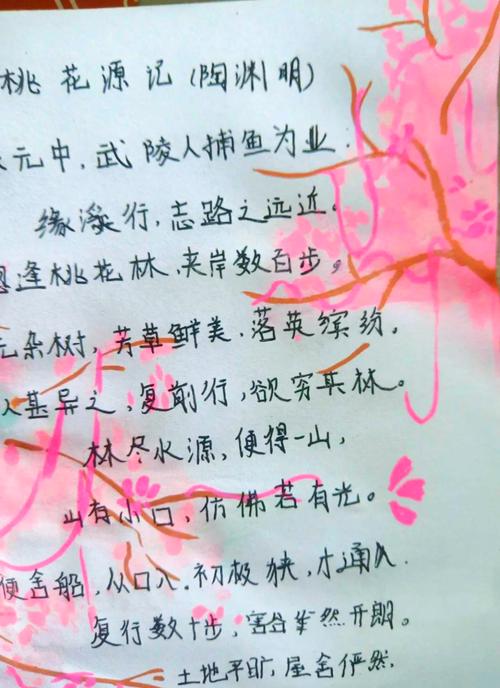 桃花源记(陶渊明)
元中，武陵人捕鱼为业.
缘溪行，志路之远近.
逢桃花林，夹岸数百步。
杂树，芳草鲜美.落英缤纷。
人甚异之，复前行，欲穷其林。
林尽水源，便得一山，
山有小口，仿佛若有光。
便舍船，从口入.初极狭，才通人.
复行数十步，然开朗。
土地平旷，屋舍俨然.